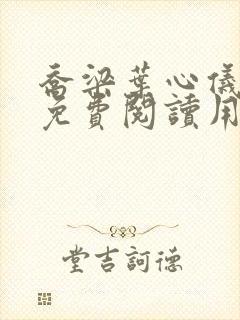 喬梁葉心儀
免費閱讀用
堂吉訶德